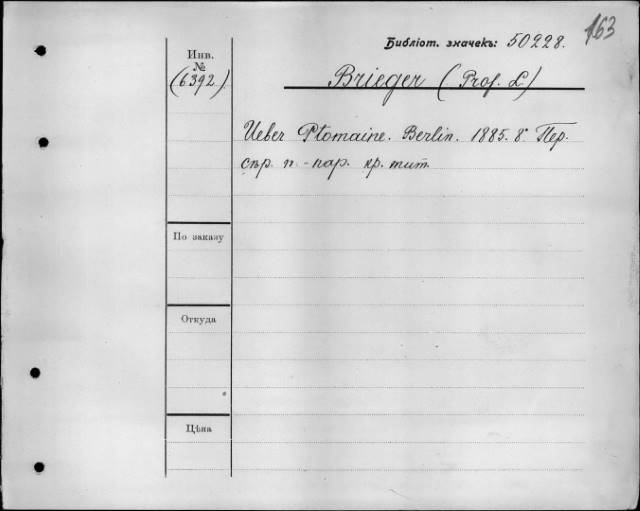 163
Библіот. значекъ: 50228.
Инв.
№
(6392)
Brieger (Prof. L)
Ueber Ptomaine. Berlin. 1885. 8° Пер.
сѣр. п.-пар. кр. тит.
По заказу
Откуда
Цѣна